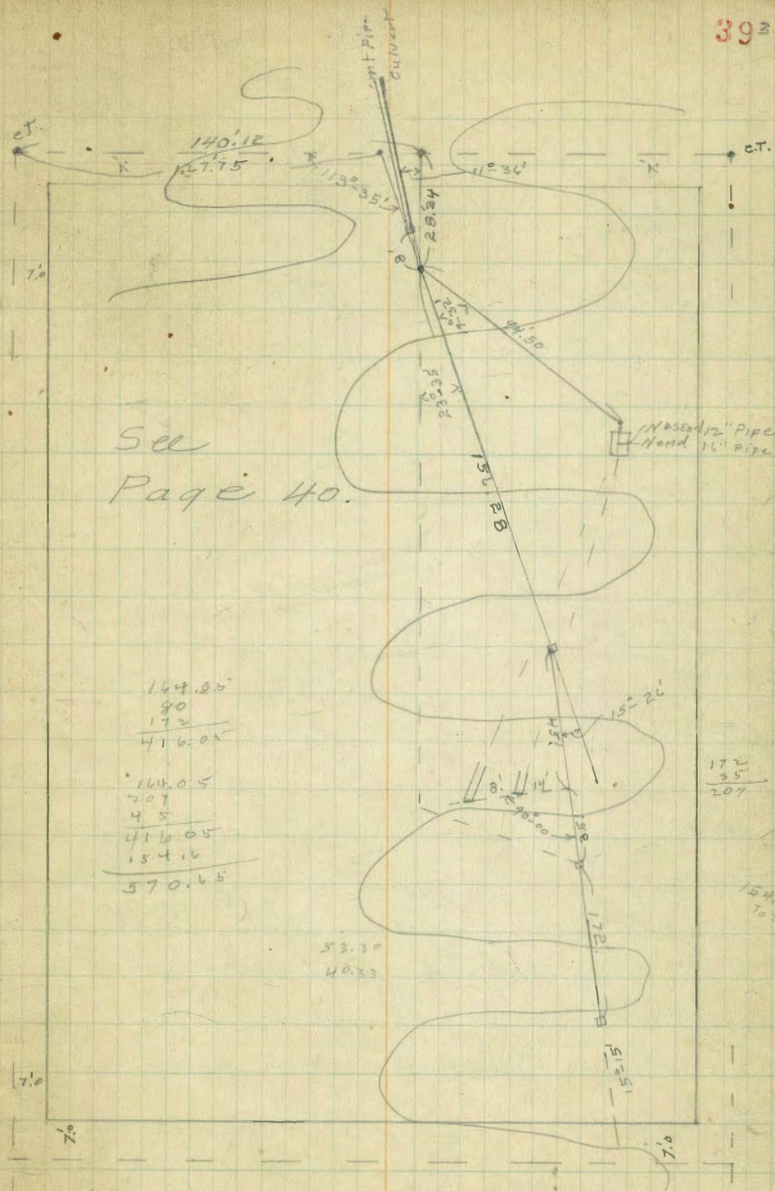 39
cmt Pipe
Culvert
C.T.
140.12
27.75
113°-35'
11°-36'
C.T.
7.
7.
28.24
8'
7.0
94.50
23°-35'
N. 12" Pipe
N end 16" Pipe
See
Page 40.
156.28
15°-26'
80
172
416.05
164.05
207
45
416.05
154.6
570.65
172
35
207
8'
14'
40°-00'
172
53.30
40.33
15°-15'
7.0
7.0
7.0